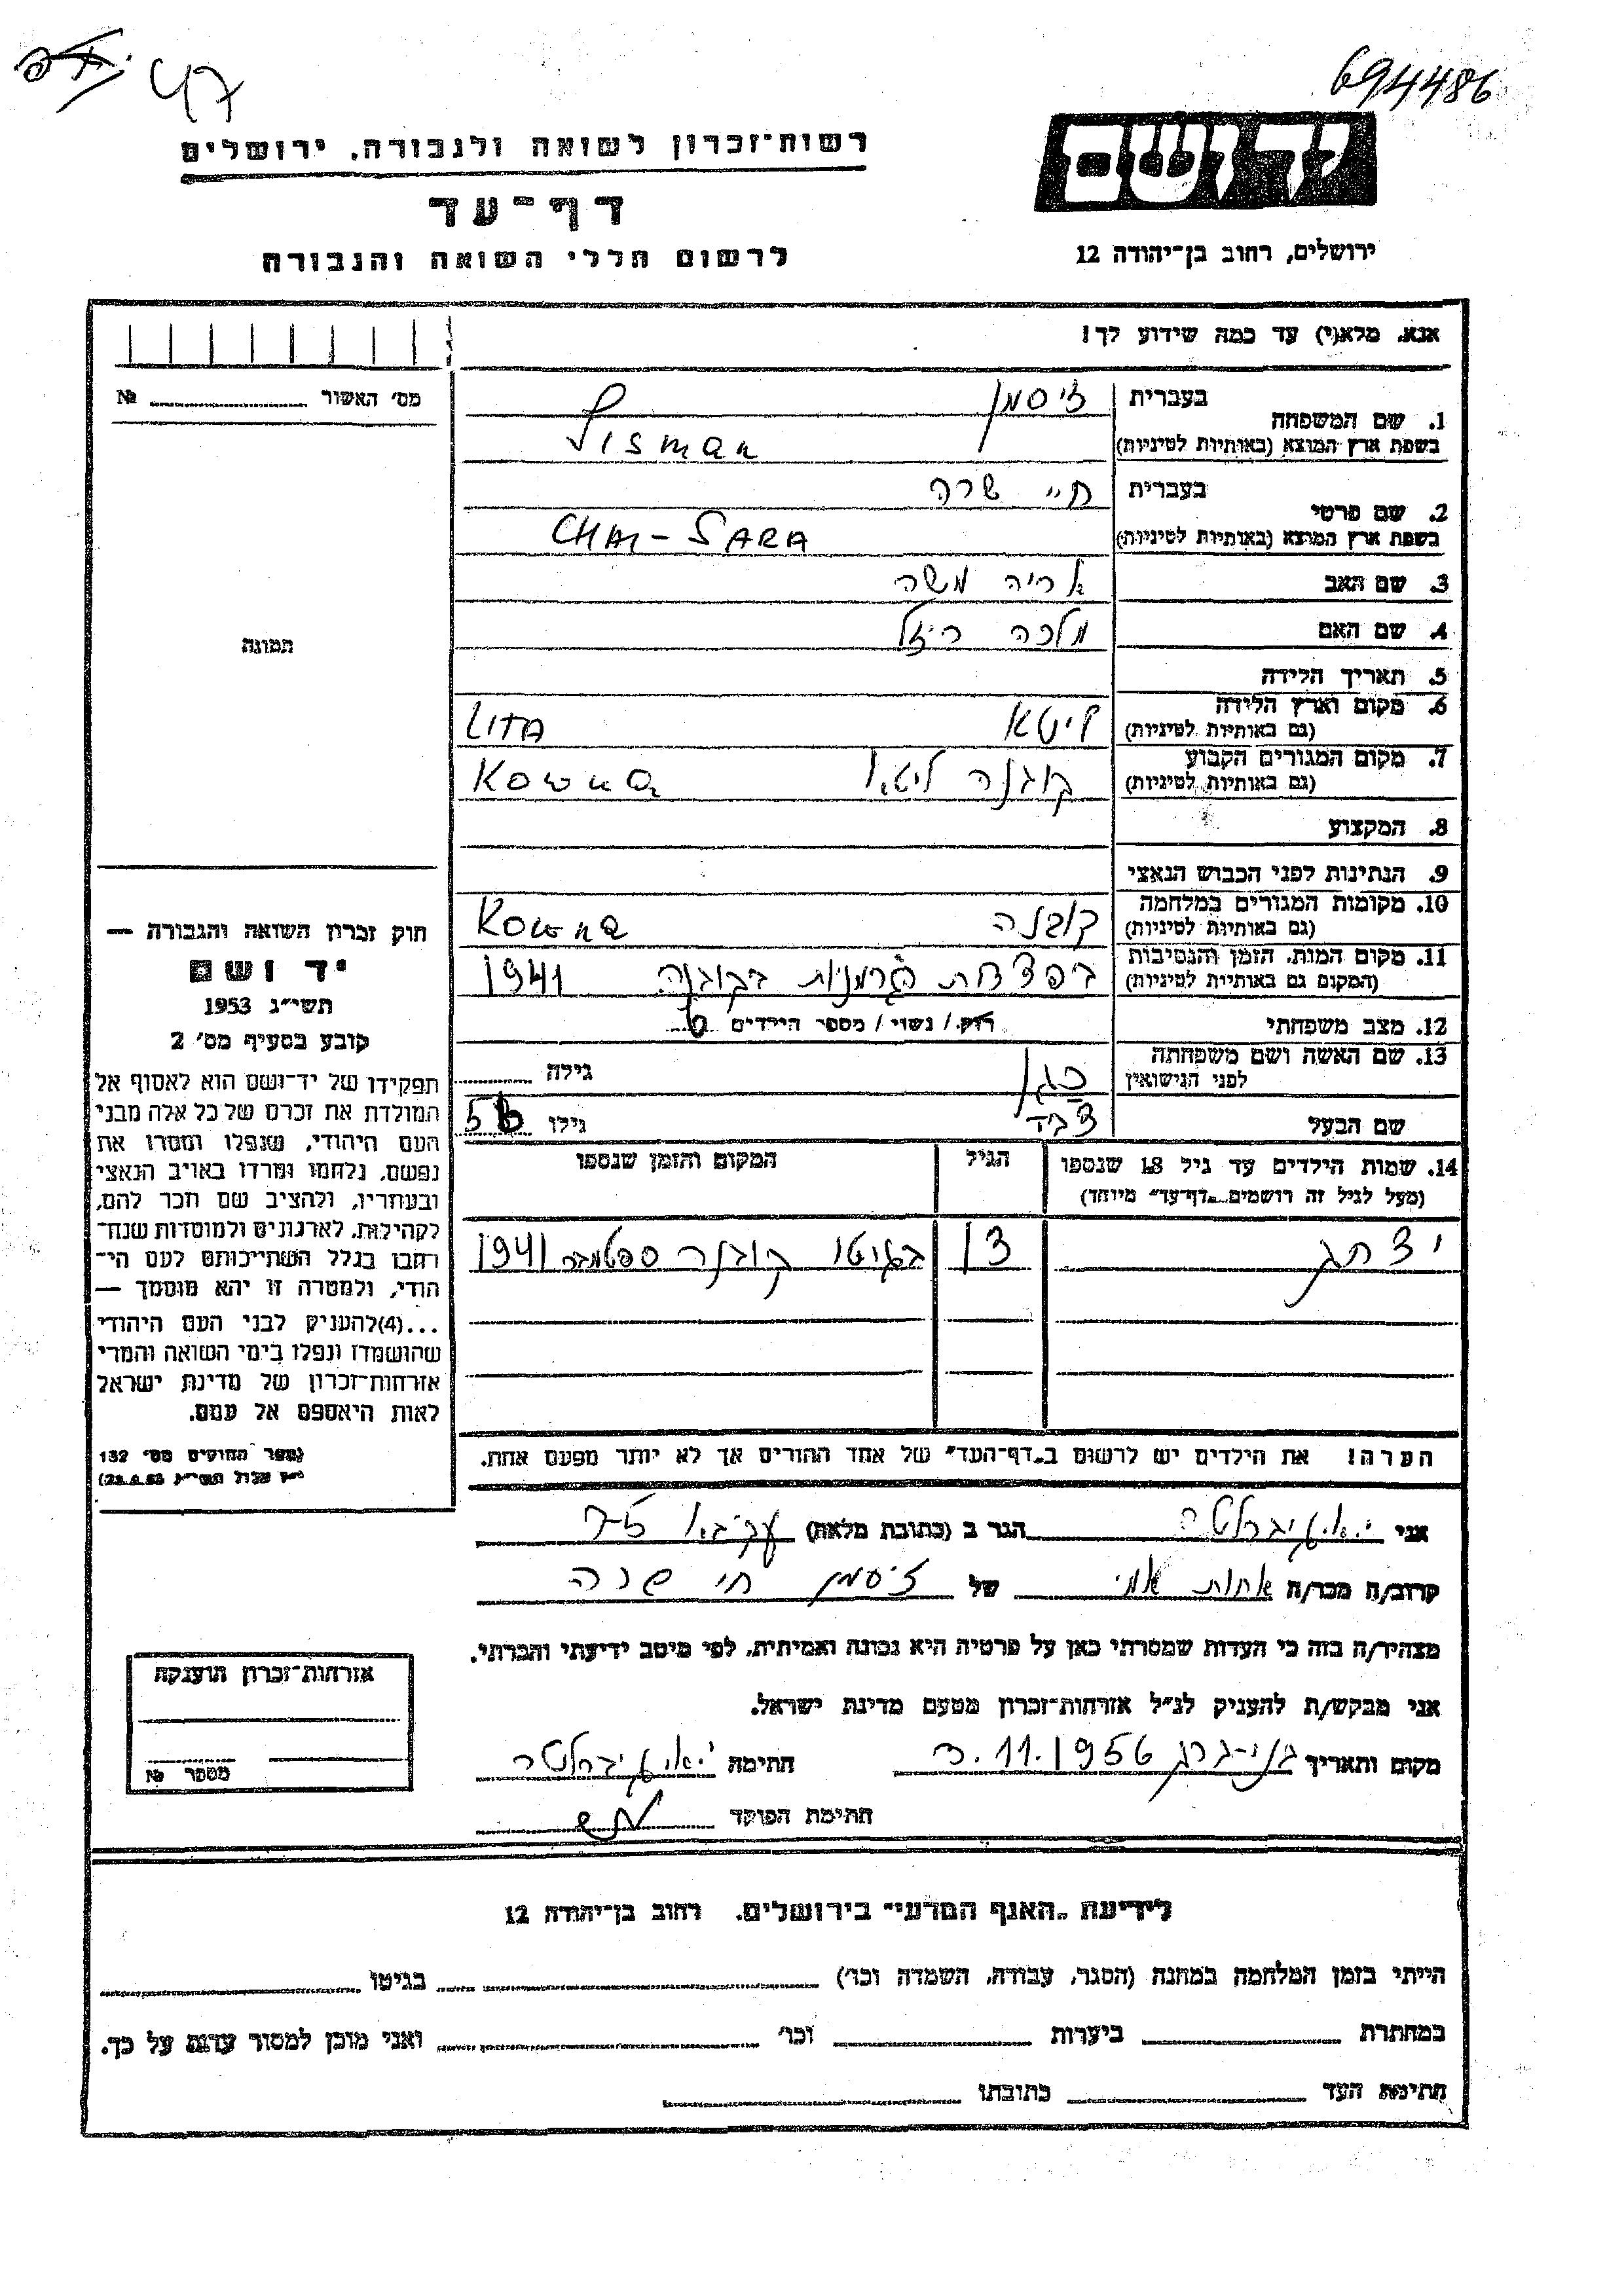 694486
47
ידושם
ירושלים, רחוב בן־יהודה 12
רשות־זכרון לשואה ולגבורה, ירושלים
דף־עד
לרשום חללי השואה והגבורה
אנא, מלא(י) עד כמה שידוע לך!
מס' האשור № 
1. שם המשפחה
בעברית זיסמן
בשפת ארץ המוצא (באותיות לטיניות) Sisman
2. שם פרטי
בעברית חיי שרה
בשפת ארץ המוצא (באותיות לטיניות) CHAI - SARA
3. שם האב אריה משה
4. שם האם מלכה רייזל
5. תאריך הלידה
6. מקום וארץ הלידה ליטא LITA
(גם באותיות לטיניות)
7. מקום המגורים הקבוע קובנה ליטא Kowna
(גם באותיות לטיניות)
8. המקצוע
9. הנתינות לפני הכבוש הנאצי
10. מקומות המגורים במלחמה קובנה Kowna
(גם באותיות לטיניות)
11. מקום המות, הזמן והנסיבות בקובנה 1941
(המקום גם באותיות לטיניות)
12. מצב משפחתי רוק / נשוי / מספר הילדים
13. שם האשה ושם משפחתה
לפני הנישואין כגן גילה
שם הבעל גילו 56
14. שמות הילדים עד גיל 18 שנספו הגיל המקום והזמן שנספו
(מעל לגיל זה רושמים "דף־עד" מיוחד)
יצחק 13 בגיטו קובנה ספטמבר 1941
הערה! את הילדים יש לרשום ב"דף־העד" של אחד ההורים אך לא יותר מפעם אחת.
תמונה
חוק זכרון השואה והגבורה —
יד ושם
תשי"ג 1953
קובע בסעיף מס' 2
תפקידו של יד־ושם הוא לאסוף אל
המולדת את זכרם של כל אלה מבני
העם היהודי, שנפלו ומסרו את
נפשם, נלחמו ומרדו באויב הנאצי
ובעוזריו, ולהציב שם וזכר להם,
לקהילות, לארגונים ולמוסדות שנח־
רבו בגלל השתייכותם לעם הי־
הודי, ולמטרה זו יהא מוסמך —
...(4)להעניק לבני העם היהודי
שהושמדו ונפלו בימי השואה והמרי
אזרחות־זכרון של מדינת ישראל
לאות היאספם אל עמם.
(ספר החוקים מס' 132
אני הגר ב (כתובת מלאה)
קרוב/ה מכר/ה אחות אמי של זיסמן חי שרה
מצהיר/ה בזה כי העדות שמסרתי כאן על פרטיה היא נכונה ואמיתית, לפי מיטב ידיעתי והכרתי.
אני מבקש/ת להעניק לנ"ל אזרחות־זכרון מטעם מדינת ישראל.
מקום ותאריך בני-ברק 3.11.1956 חתימה
חתימת הפוקד
אזרחות־זכרון הוענקה
מספר №
לידיעת "האגף המדעי" בירושלים, רחוב בן־יהודה 12
הייתי בזמן המלחמה במחנה (הסגר, עבודה, השמדה וכו') בגיטו
במחתרת ביערות וכו' ואני מוכן למסור עדות על כך.
חתימת העד כתובתו